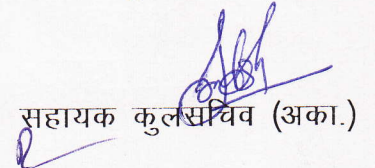 सहायक कुलसचिव (अका.)